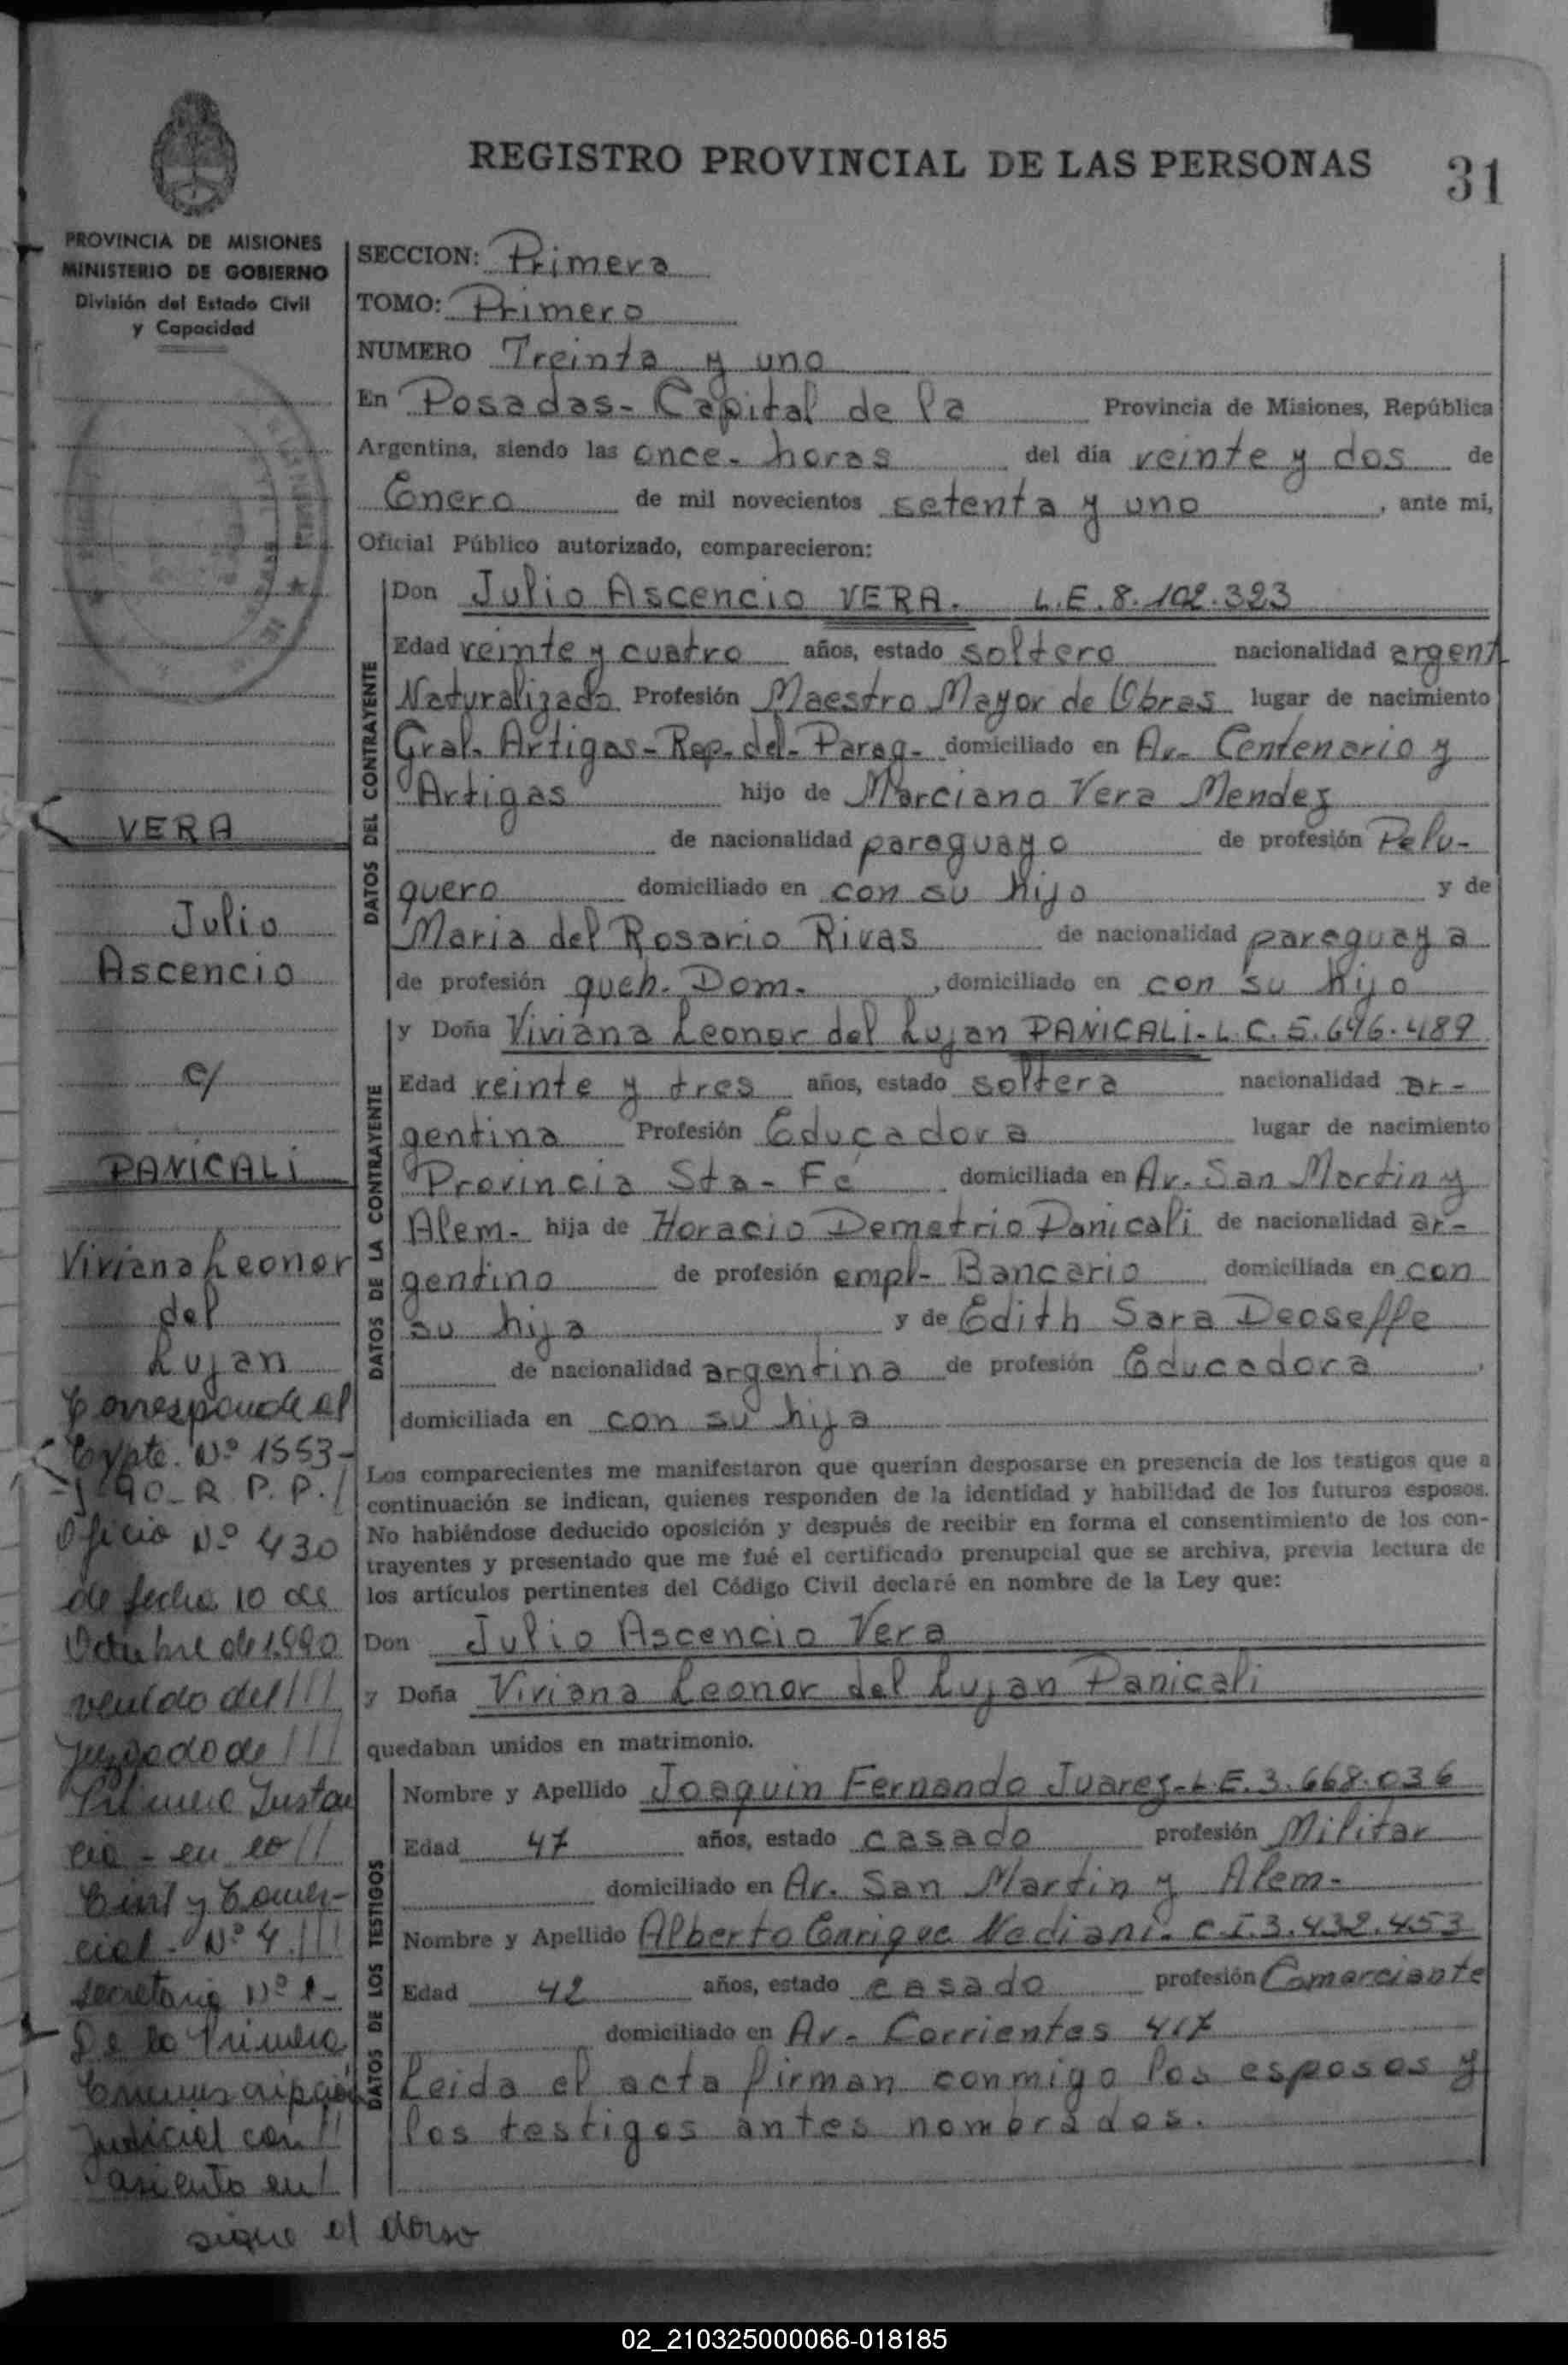 REGISTRO PROVINCIAL DE LAS PERSONAS
31
PROVINCIA DE MISIONES
MINISTERIO DE GOBIERNO
División del Estado Civil
y Capacidad
VERA
Julio
Ascencio
c/
PANICALI
Viviana Leonor
del
Lujan
Corresponde al
Expte. Nº 1553-
-J-90_R P. P./
Oficio Nº 430
de fecha 10 de
Octubre de 1.990
venido del///
Juzgado de ///
Primera Instan
cia - en lo //
Civil y Comer-
cial - Nº 4.///
secretaria Nº 1-
De la Primera
Circunscripción
Judicial con //
asiento en/
sigue al dorso
SECCION: Primera
TOMO: Primero
NUMERO Treinta y uno
En Posadas- Capital de la Provincia de Misiones, República
Argentina, siendo las once- horas del día veinte y dos de
Enero de mil novecientos setenta y uno, ante mi,
Oficial Público autorizado, comparecieron:
DATOS DEL CONTRAYENTE
Don Julio Ascencio VERA. L.E. 8.102.323
Edad veinte y cuatro años, estado soltero nacionalidad argent.
Naturalizado Profesión Maestro Mayor de Obras lugar de nacimiento
Gral. Artigas-Rep. del- Parag- domiciliado en Av- Centenario y
Artigas hijo de Marciano Vera Mendez
de nacionalidad paraguayo de profesión Pelu-
quero domiciliado en con su hijo y de
Maria del Rosario Rivas de nacionalidad paraguaya
de profesión queh. Dom. , domiciliado en con su hijo
DATOS DE LA CONTRAYENTE
y Doña Viviana Leonor del Lujan PANICALI- L.C. 5.646.489
Edad veinte y tres años, estado soltera nacionalidad ar-
gentina Profesión Educadora lugar de nacimiento
Provincia Sta- Fé domiciliada en Av. San Martin y
Alem- hija de Horacio Demetrio Panicali de nacionalidad ar-
gentino de profesión empl- Bancario domiciliada en con
su hija y de Edith Sara Deoseffe
de nacionalidad argentina de profesión Educadora ,
domiciliada en con su hija
Los comparecientes me manifestaron que querían desposarse en presencia de los testigos que a
continuación se indican, quienes responden de la identidad y habilidad de los futuros esposos.
No habiéndose deducido oposición y después de recibir en forma el consentimiento de los con-
trayentes y presentado que me fué el certificado prenupcial que se archiva, previa lectura de
los artículos pertinentes del Código Civil declaré en nombre de la Ley que:
Don Julio Ascencio Vera
y Doña Viviana Leonor del Lujan Panicali
quedaban unidos en matrimonio.
DATOS DE LOS TESTIGOS
Nombre y Apellido Joaquin Fernando Juarez- L.E. 3.668.036
Edad 47 años, estado casado profesión Militar
domiciliado en Av. San Martin y Alem-
Nombre y Apellido Alberto Enrique Nediani- C.I. 3.432.453
Edad 42 años, estado casado profesión Comerciante
domiciliado en Av- Corrientes 417
Leida el acta firman conmigo los esposos y
los testigos antes nombrados.
02_210325000066-018185